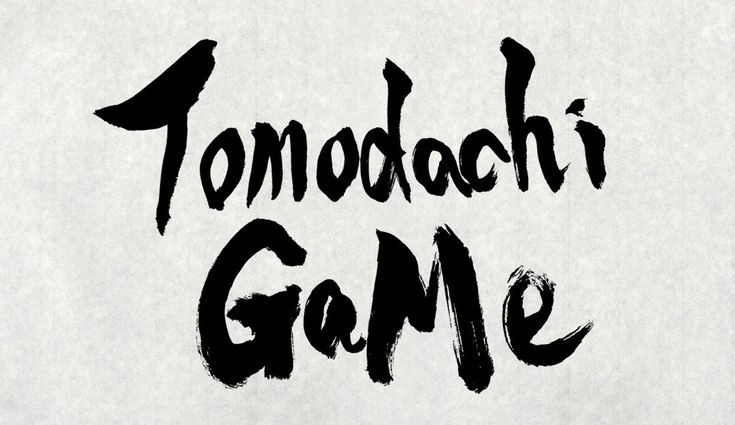 Tomodachi
GaMe